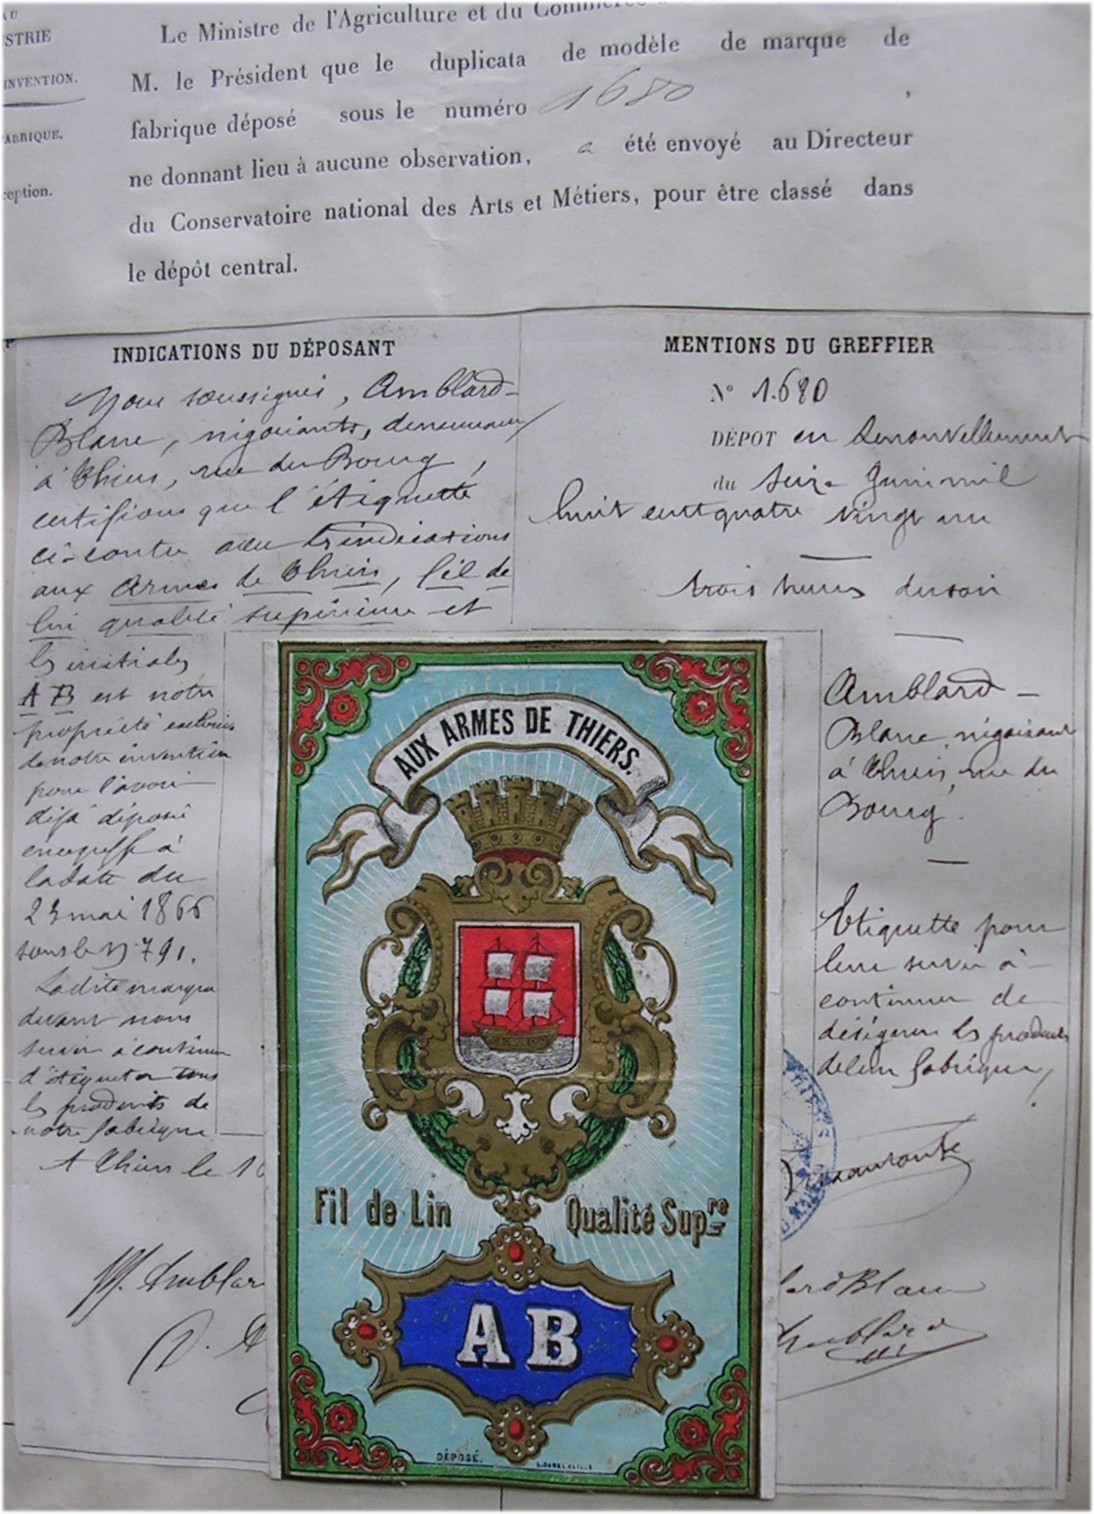 AU
STRIE
INVENTION.
ABRIQUE.
ception.
Le Ministre de l'Agriculture et du Commerce
M. le Président que le duplicata de modèle de marque de
fabrique déposé sous le numéro 1680 ,
ne donnant lieu à aucune observation, a été envoyé au Directeur
du Conservatoire national des Arts et Métiers, pour être classé dans
le dépôt central.
INDICATIONS DU DÉPOSANT
Nous soussignés, Amblard-
Blanc, négociants, demeurant
à Thiers, rue du Bourg,
certifions que l'étiquette
ci-contre avec les indications
aux Armes de Thiers, fil de
lin qualité supérieure et
les initiales
A B est notre
propriété
de notre invention
pour l'avoir
déjà déposé
au greffe à
la date du
23 mai 1866
sous le N° 791.
Ladite marque
devant nous
servir à continuer
d'étiqueter tous
les produits de
notre fabrique
A Thiers le 10
MENTIONS DU GREFFIER
N° 1.680
DÉPOT en renouvellement
du seize Juin mil
huit cent quatre vingt un
trois heures du soir
Amblard -
Blanc, négociant
à Thiers, rue du
Bourg.
Etiquette pour
leur servir à
continuer de
désigner les produits
de leur fabrique,
AUX ARMES DE THIERS.
Fil de Lin Qualité Supre
A B
DÉPOSÉ.
Amblar
lard Blanc
Amblard